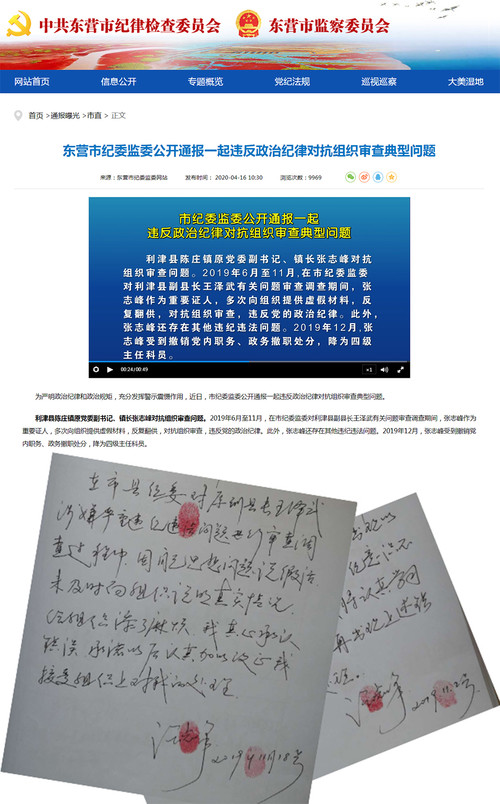 中共东营市纪律检查委员会 东营市监察委员会
网站首页 信息公开 专题概览 党纪法规 巡视巡察 大美湿地
首页 >通报曝光 >市直 > 正文
东营市纪委监委公开通报一起违反政治纪律对抗组织审查典型问题
来源：东营市纪委监委网站 发布时间： 2020-04-16 10:30 浏览次数：9969
市纪委监委公开通报一起
违反政治纪律对抗组织审查典型问题
利津县陈庄镇原党委副书记、镇长张志峰对抗
组织审查问题。2019年6月至11月,在市纪委监委
对利津县副县长王泽武有关问题审查调查期间，张
志峰作为重要证人，多次向组织提供虚假材料，反
复翻供，对抗组织审查，违反党的政治纪律。此外，
张志峰还存在其他违纪违法问题。2019年12月,张
志峰受到撤销党内职务、政务撤职处分，降为四级
主任科员。
00:24/00:49 ×1
为严明政治纪律和政治规矩，充分发挥警示震慑作用，近日，市纪委监委公开通报一起违反政治纪律对抗组织审查典型问题。
利津县陈庄镇原党委副书记、镇长张志峰对抗组织审查问题。2019年6月至11月，在市纪委监委对利津县副县长王泽武有关问题审查调查期间，张志峰作为重
要证人，多次向组织提供虚假材料，反复翻供，对抗组织审查，违反党的政治纪律。此外，张志峰还存在其他违纪违法问题。2019年12月，张志峰受到撤销党
内职务、政务撤职处分，降为四级主任科员。
在市县纪委对原副县长王泽武
涉嫌严重违纪违法问题进行审查调
查过程中，因自己思想问题说假话
未及时向组织说明真实情况，
给组织添了麻烦，我真心承认
错误，承诺以后认真加以改正，我
接受组织上对我的处理。
2019年11月18号